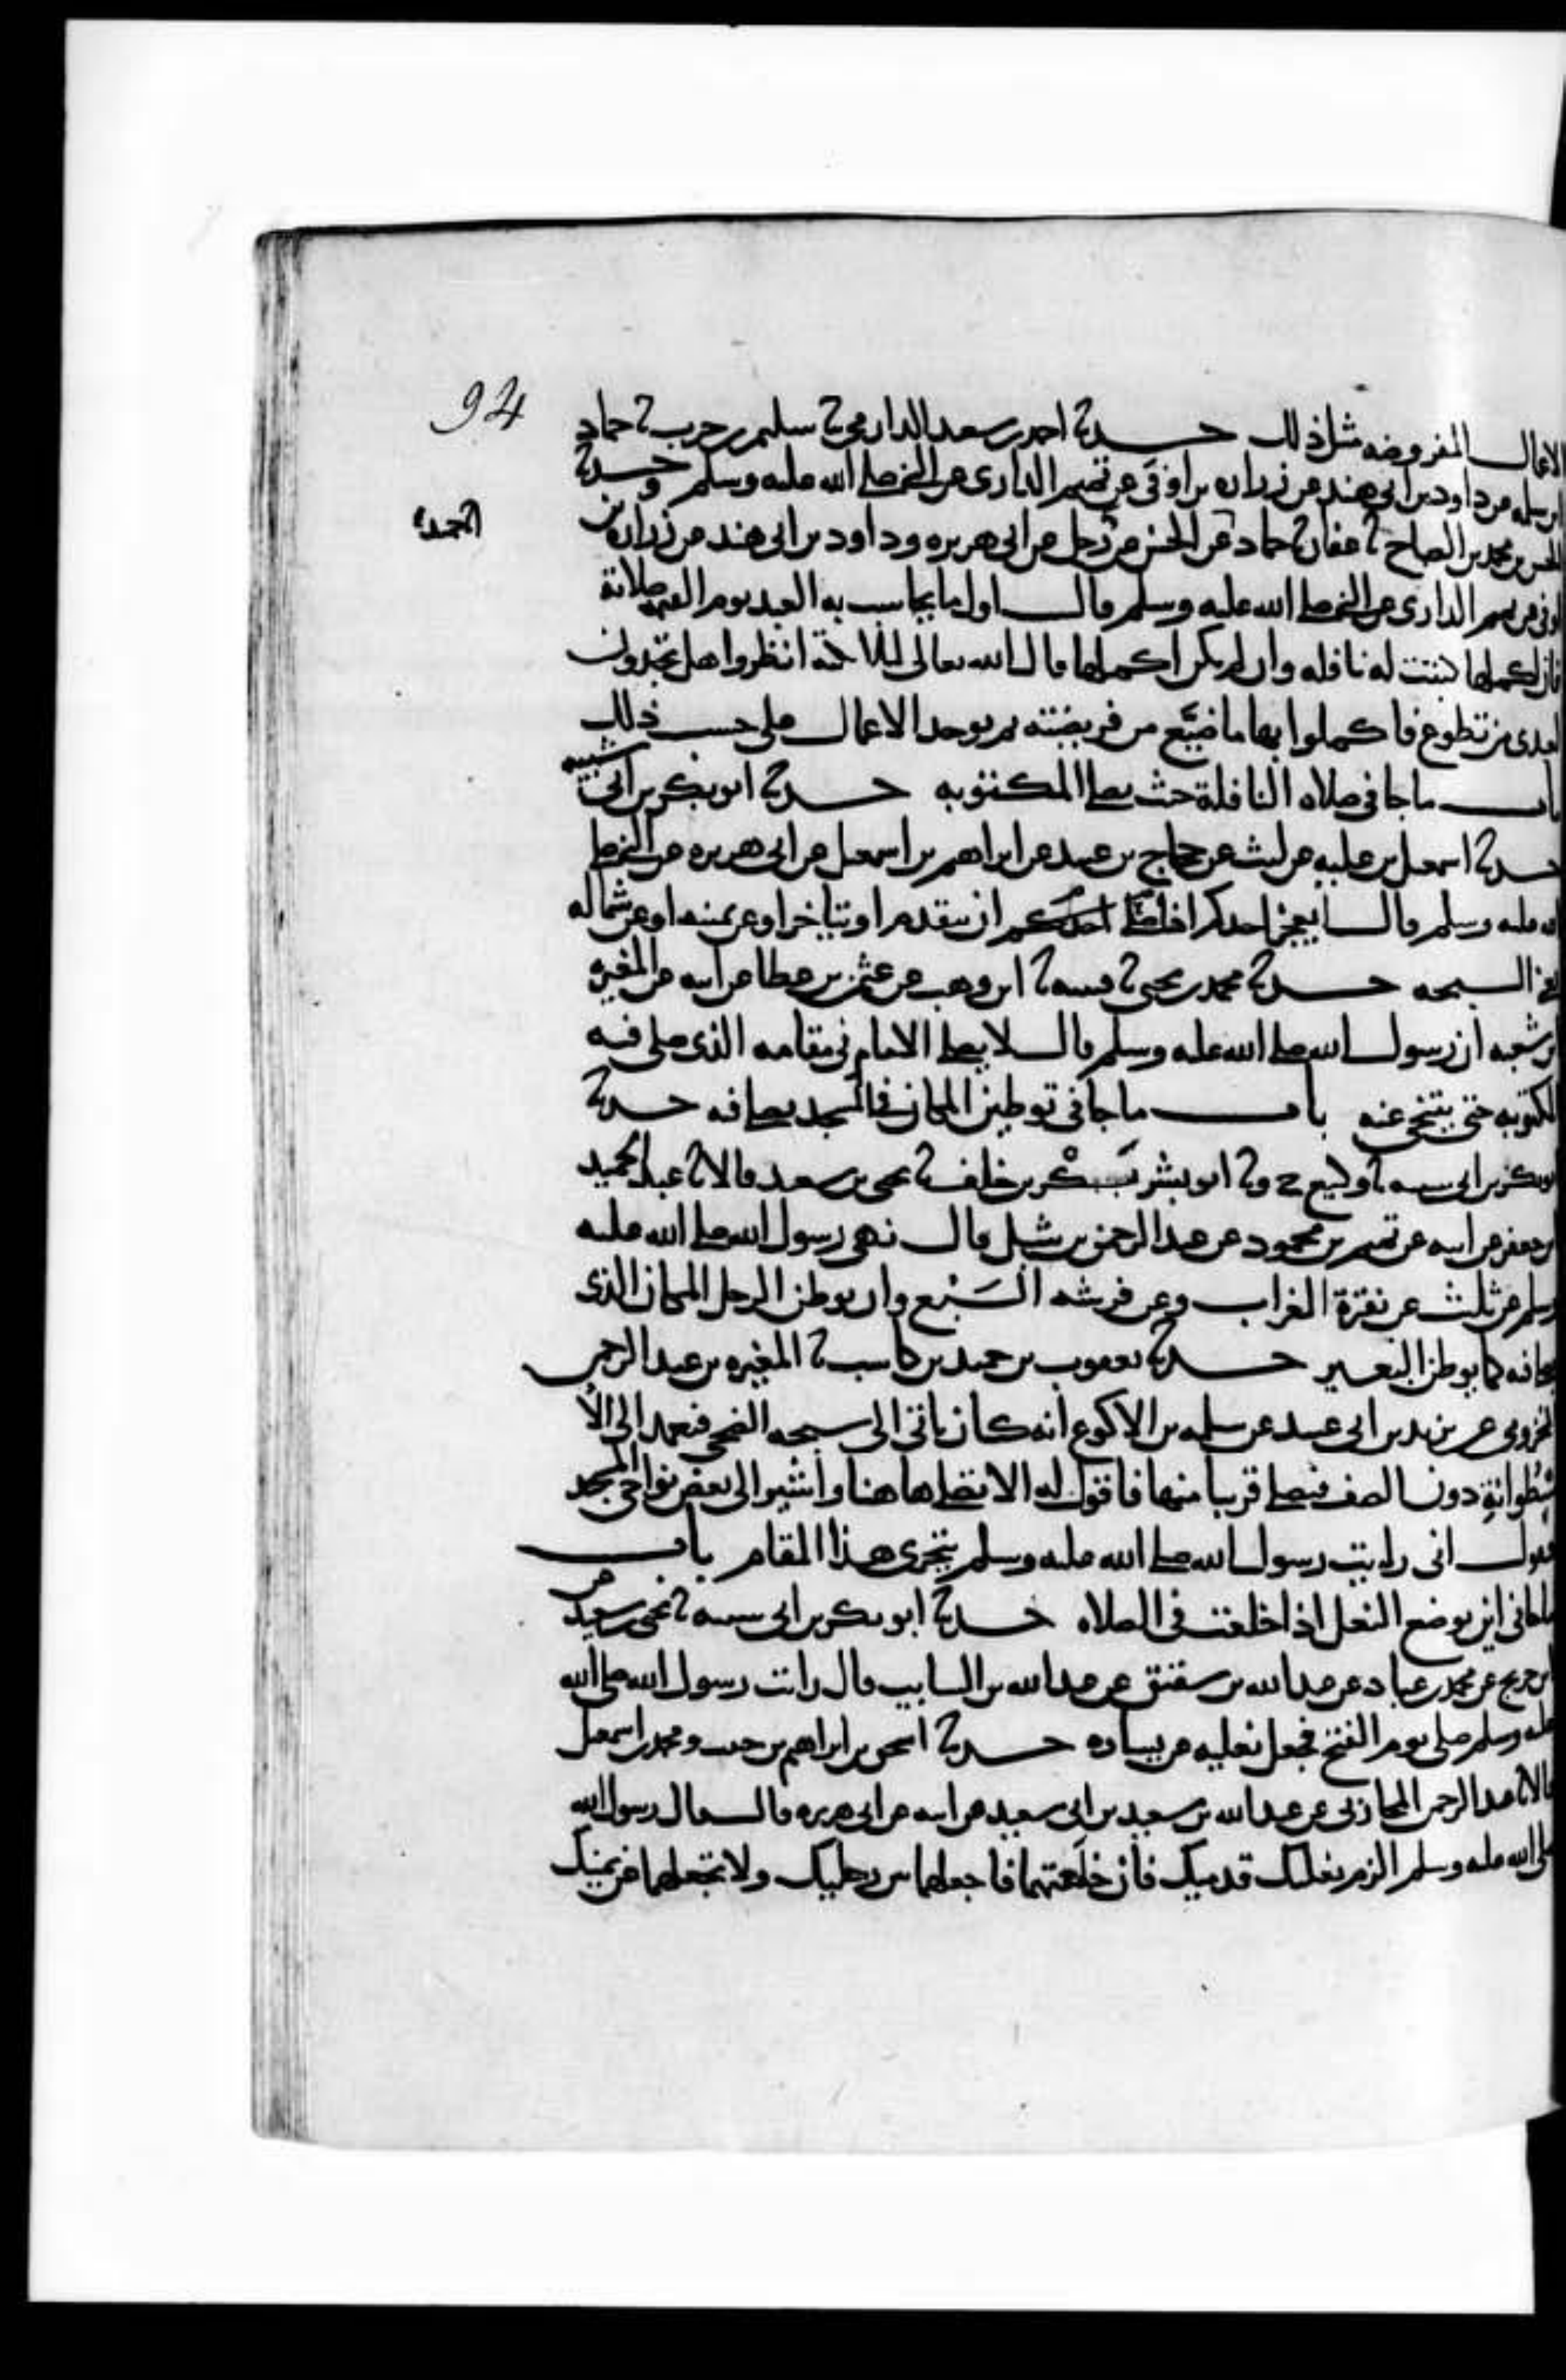 94
الاعمال المفروضه مثل ذلك حدثنا احمد بن سعيد الدارمي ثنا سليمن بن حرب ثنا حماد
بن سلمه عن داود بن ابي هند عن زراره بن اوفى عن تميم الداري عن النبي صلى الله عليه وسلم وحدثنا
الحسن بن محمد بن الصباح ثنا عفان ثنا حماد عن الحسن عن رجل عن ابي هريره وداود بن ابي هند عن زراره بن
اوفى عن تميم الداري عن النبي صلى الله عليه وسلم قال اول ما يحاسب به العبد يوم القيمه صلاته
فان اكملها كتبت له نافله وان لم يكن اكملها قال الله تعالى للملائكة انظروا هل تجدون
لعبدي من تطوع فاكملوا بها ما ضيَّع من فريضته ثم توخذ الاعمال على حسب ذلك
باب ما جا في صلاه النافلة حيث يصلي المكتوبه حدثنا ابو بكر بن ابي شيبه
حدثنا اسمعيل بن عليه عن ليث عن حجاج بن عبيد عن ابراهيم بن اسمعيل عن ابي هريره عن النبي صلى
الله عليه وسلم قال ايعجز احدكم اذا صلى احدكم ان يتقدم او يتاخر او عن يمينه او عن شماله
يعني السبحه حدثنا محمد بن يحيى ثنا قتيبه ثنا ابن وهب عن عثمن بن عطا عن ابيه عن المغيره
بن شعبه ان رسول الله صلى الله عليه وسلم قال لا يصلي الامام في مقامه الذي صلى فيه
المكتوبه حتى يتنحى عنه باب ما جا في توطين المكان في المسجد يصلي فيه حدثنا
ابو بكر بن ابي شيبه ثنا وكيع ح وثنا ابو بشر بَكْر بن خلف ثنا يحيى بن سعيد قالا ثنا عبد الحميد
بن جعفر عن ابيه عن تميم بن محمود عن عبد الرحمن بن شبل قال نهى رسول الله صلى الله عليه
وسلم عن ثلث عن نقرة الغراب وعن فرشه السَبُع وان يوطن الرجل المكان الذي
يصلي فيه كما يوطن البعير حدثنا يعقوب بن حميد بن كاسب ثنا المغيره بن عبد الرحمن
المخزومي عن يزيد بن ابي عبيد عن سلمه بن الاكوع انه كان ياتي الى سبحه الضحى فيعمد الى الا
سْطُوانةِ دون الصف فيصلي قريبا منها فاقول له الا تصلي هاهنا واشير الى بعض نواحي المسجد
فيقول اني رايت رسول الله صلى الله عليه وسلم يتحرى هذا المقام باب
ما جا في اين توضع النعل اذا خلعت في الصلاه حدثنا ابو بكر بن ابي شيبه ثنا يحيى بن سعيد عن
ابن جريج عن محمد بن عباد عن عبد الله بن سفين عن عبد الله بن السايب قال رايت رسول الله صلى الله
عليه وسلم صلى يوم الفتح فجعل نعليه عن يساره حدثنا اسحق بن ابراهيم بن حبيب ومحمد بن اسمعيل
قالا ثنا عبد الرحمن المحاربي عن عبد الله بن سعيد بن ابي سعيد عن ابيه عن ابي هريره قال قال رسول الله
صلى الله عليه وسلم الزم نعليك قدميك فان خلعتهما فاجعلهما بين رجليك ولا تجعلهما عن يمينك